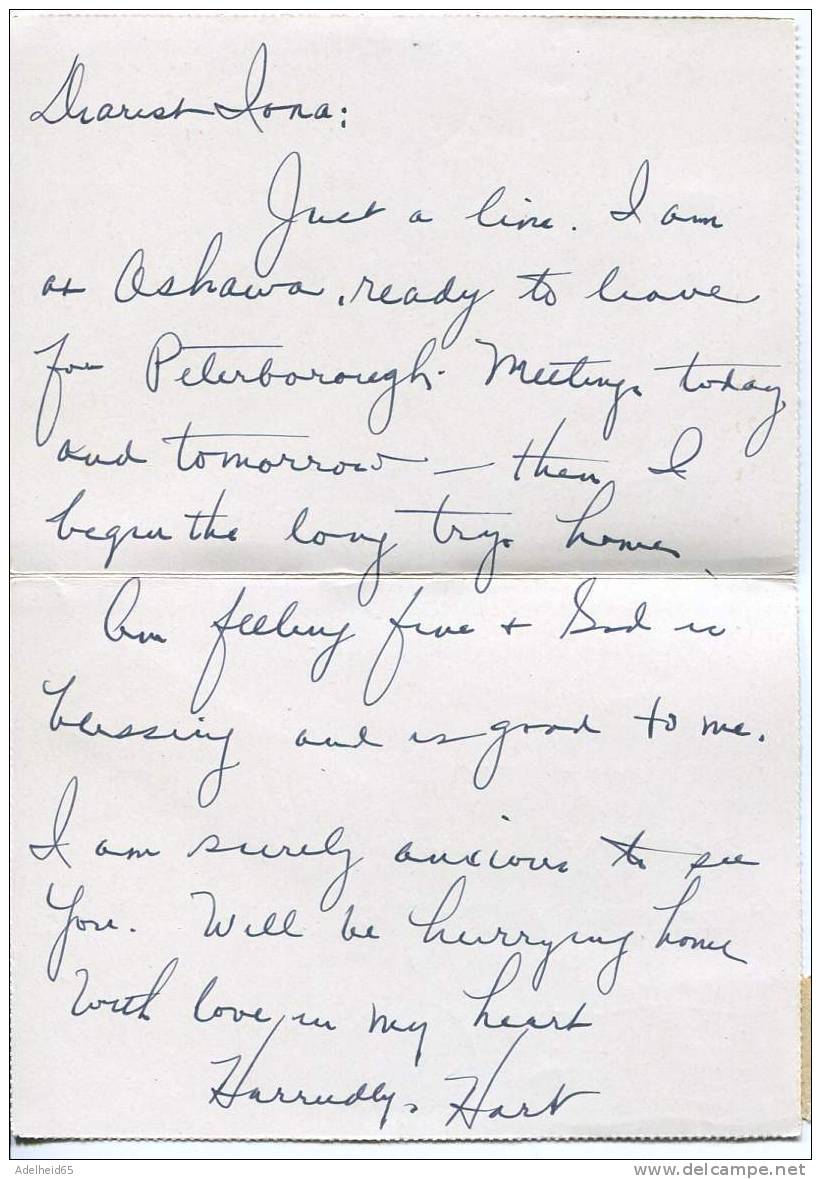 Dearest Iona:
Just a line. I am
at Oshawa, ready to leave
for Peterborough. Meetings today
and tomorrow — then I
begin the long trip home.
Am feeling fine + God is
blessing and is good to me.
I am surely anxious to see
you. Will be hurrying home
With love in my heart
Hurriedly, Hart
Adelheid65
www.delcampe.net